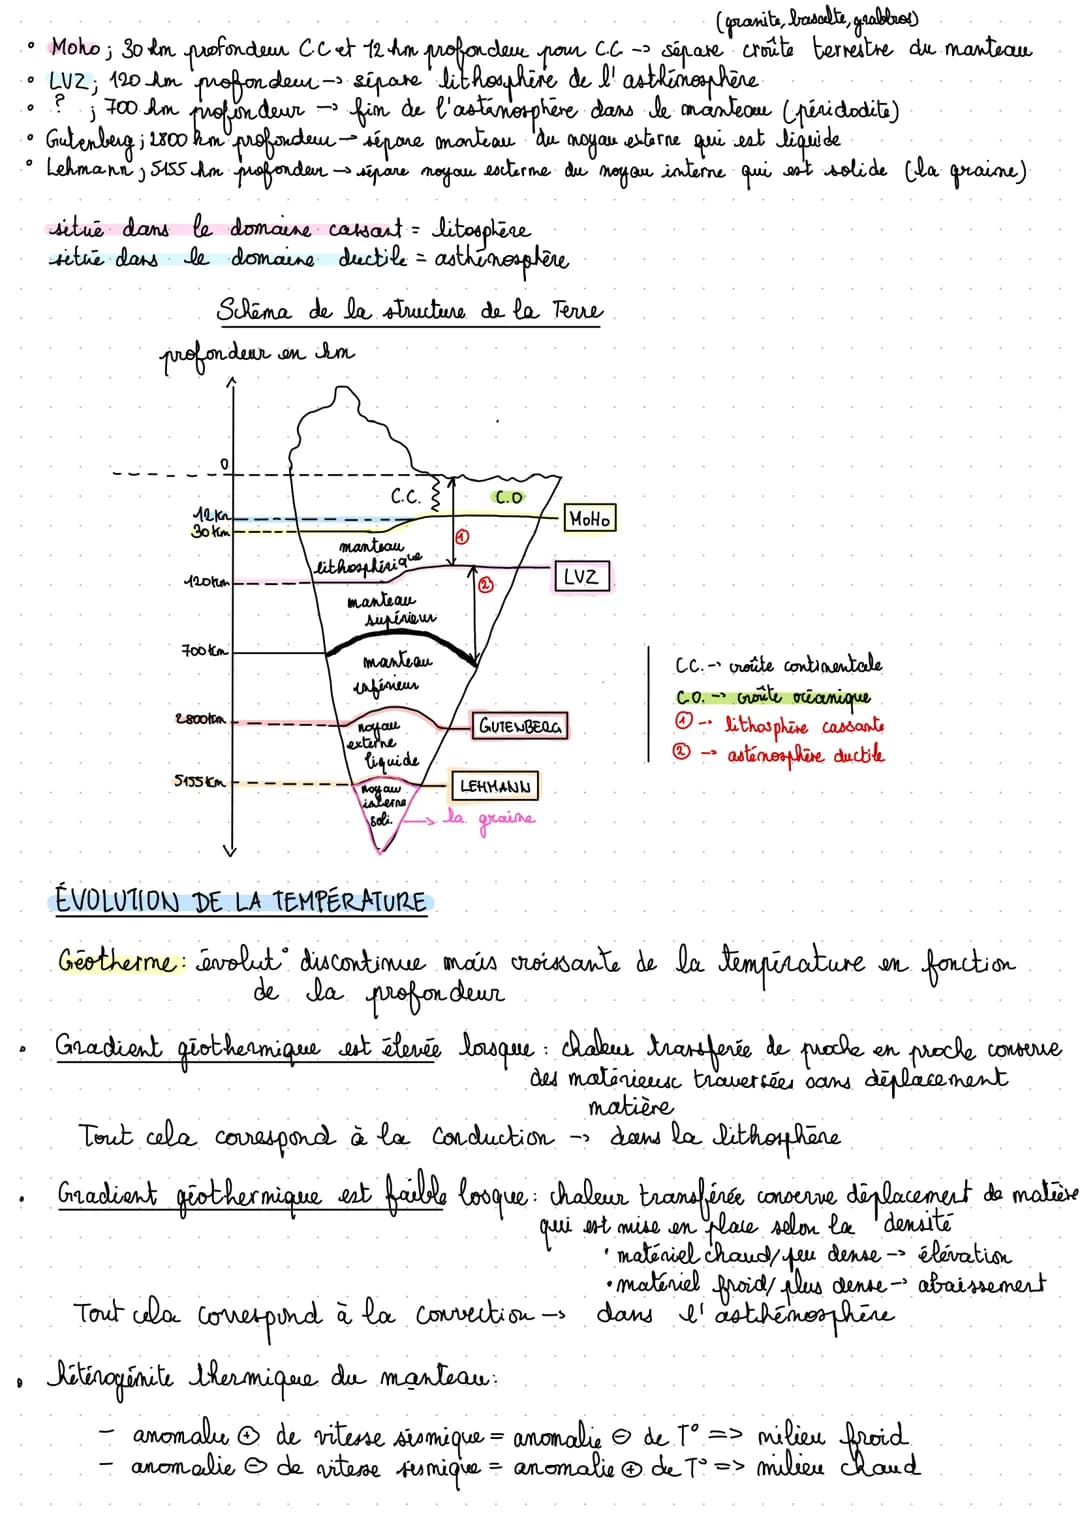 (granite, basalte, grabbros)
• Moho ; 30 km profondeur CC et 12 km profondeur pour C.C -> sépare croûte terrestre du manteau
• LVZ ; 120 km profondeur -> sépare lithosphère de l'asthénosphère
• ? ; 700 km profondeur -> fin de l'asténosphère dans le manteau (péridodite)
• Gutenberg ; 2800 km profondeur -> sépare manteau du noyau externe qui est liquide
• Lehmann ; 5155 km profondeur -> sépare noyau externe du noyau interne qui est solide (la graine)
situé dans le domaine cassant = litosphère
situé dans le domaine ductile = asthénosphère
Schéma de la structure de la Terre
profondeur en km
0
C.C.
C.O
12 Km
30 km
MOHO
①
manteau
lithosphérique
120 km
LVZ
②
manteau
supérieur
700 km
manteau
inférieur
C.C. -> croûte continentale
C.O. -> Croûte océanique
① -> lithosphère cassante
② -> asténosphère ductile
2800 km
GUTENBERG
noyau
externe
liquide
5155 Km
LEHMANN
noyau
interne
soli.
-> la graine
ÉVOLUTION DE LA TEMPÉRATURE
Géotherme : évolut° discontinue mais croissante de la température en fonction
de la profondeur
• Gradient géothermique est élevée lorsque : chaleur transferée de proche en proche conserve
des matérieux traversées sans déplacement
matière
Tout cela correspond à la Conduction -> dans la lithosphère
• Gradient géothermique est faible losque : chaleur transférée conserve déplacement de matière
qui est mise en place selon la densité
• matériel chaud/peu dense -> élévation
• matériel froid/plus dense -> abaissement
Tout cela correspond à la convection -> dans l'asthénosphère
• hétérogénite thermique du manteau :
- anomalie ⊕ de vitesse sismique = anomalie ⊖ de T° => milieu froid
- anomalie ⊖ de vitesse sismique = anomalie ⊕ de T° => milieu chaud